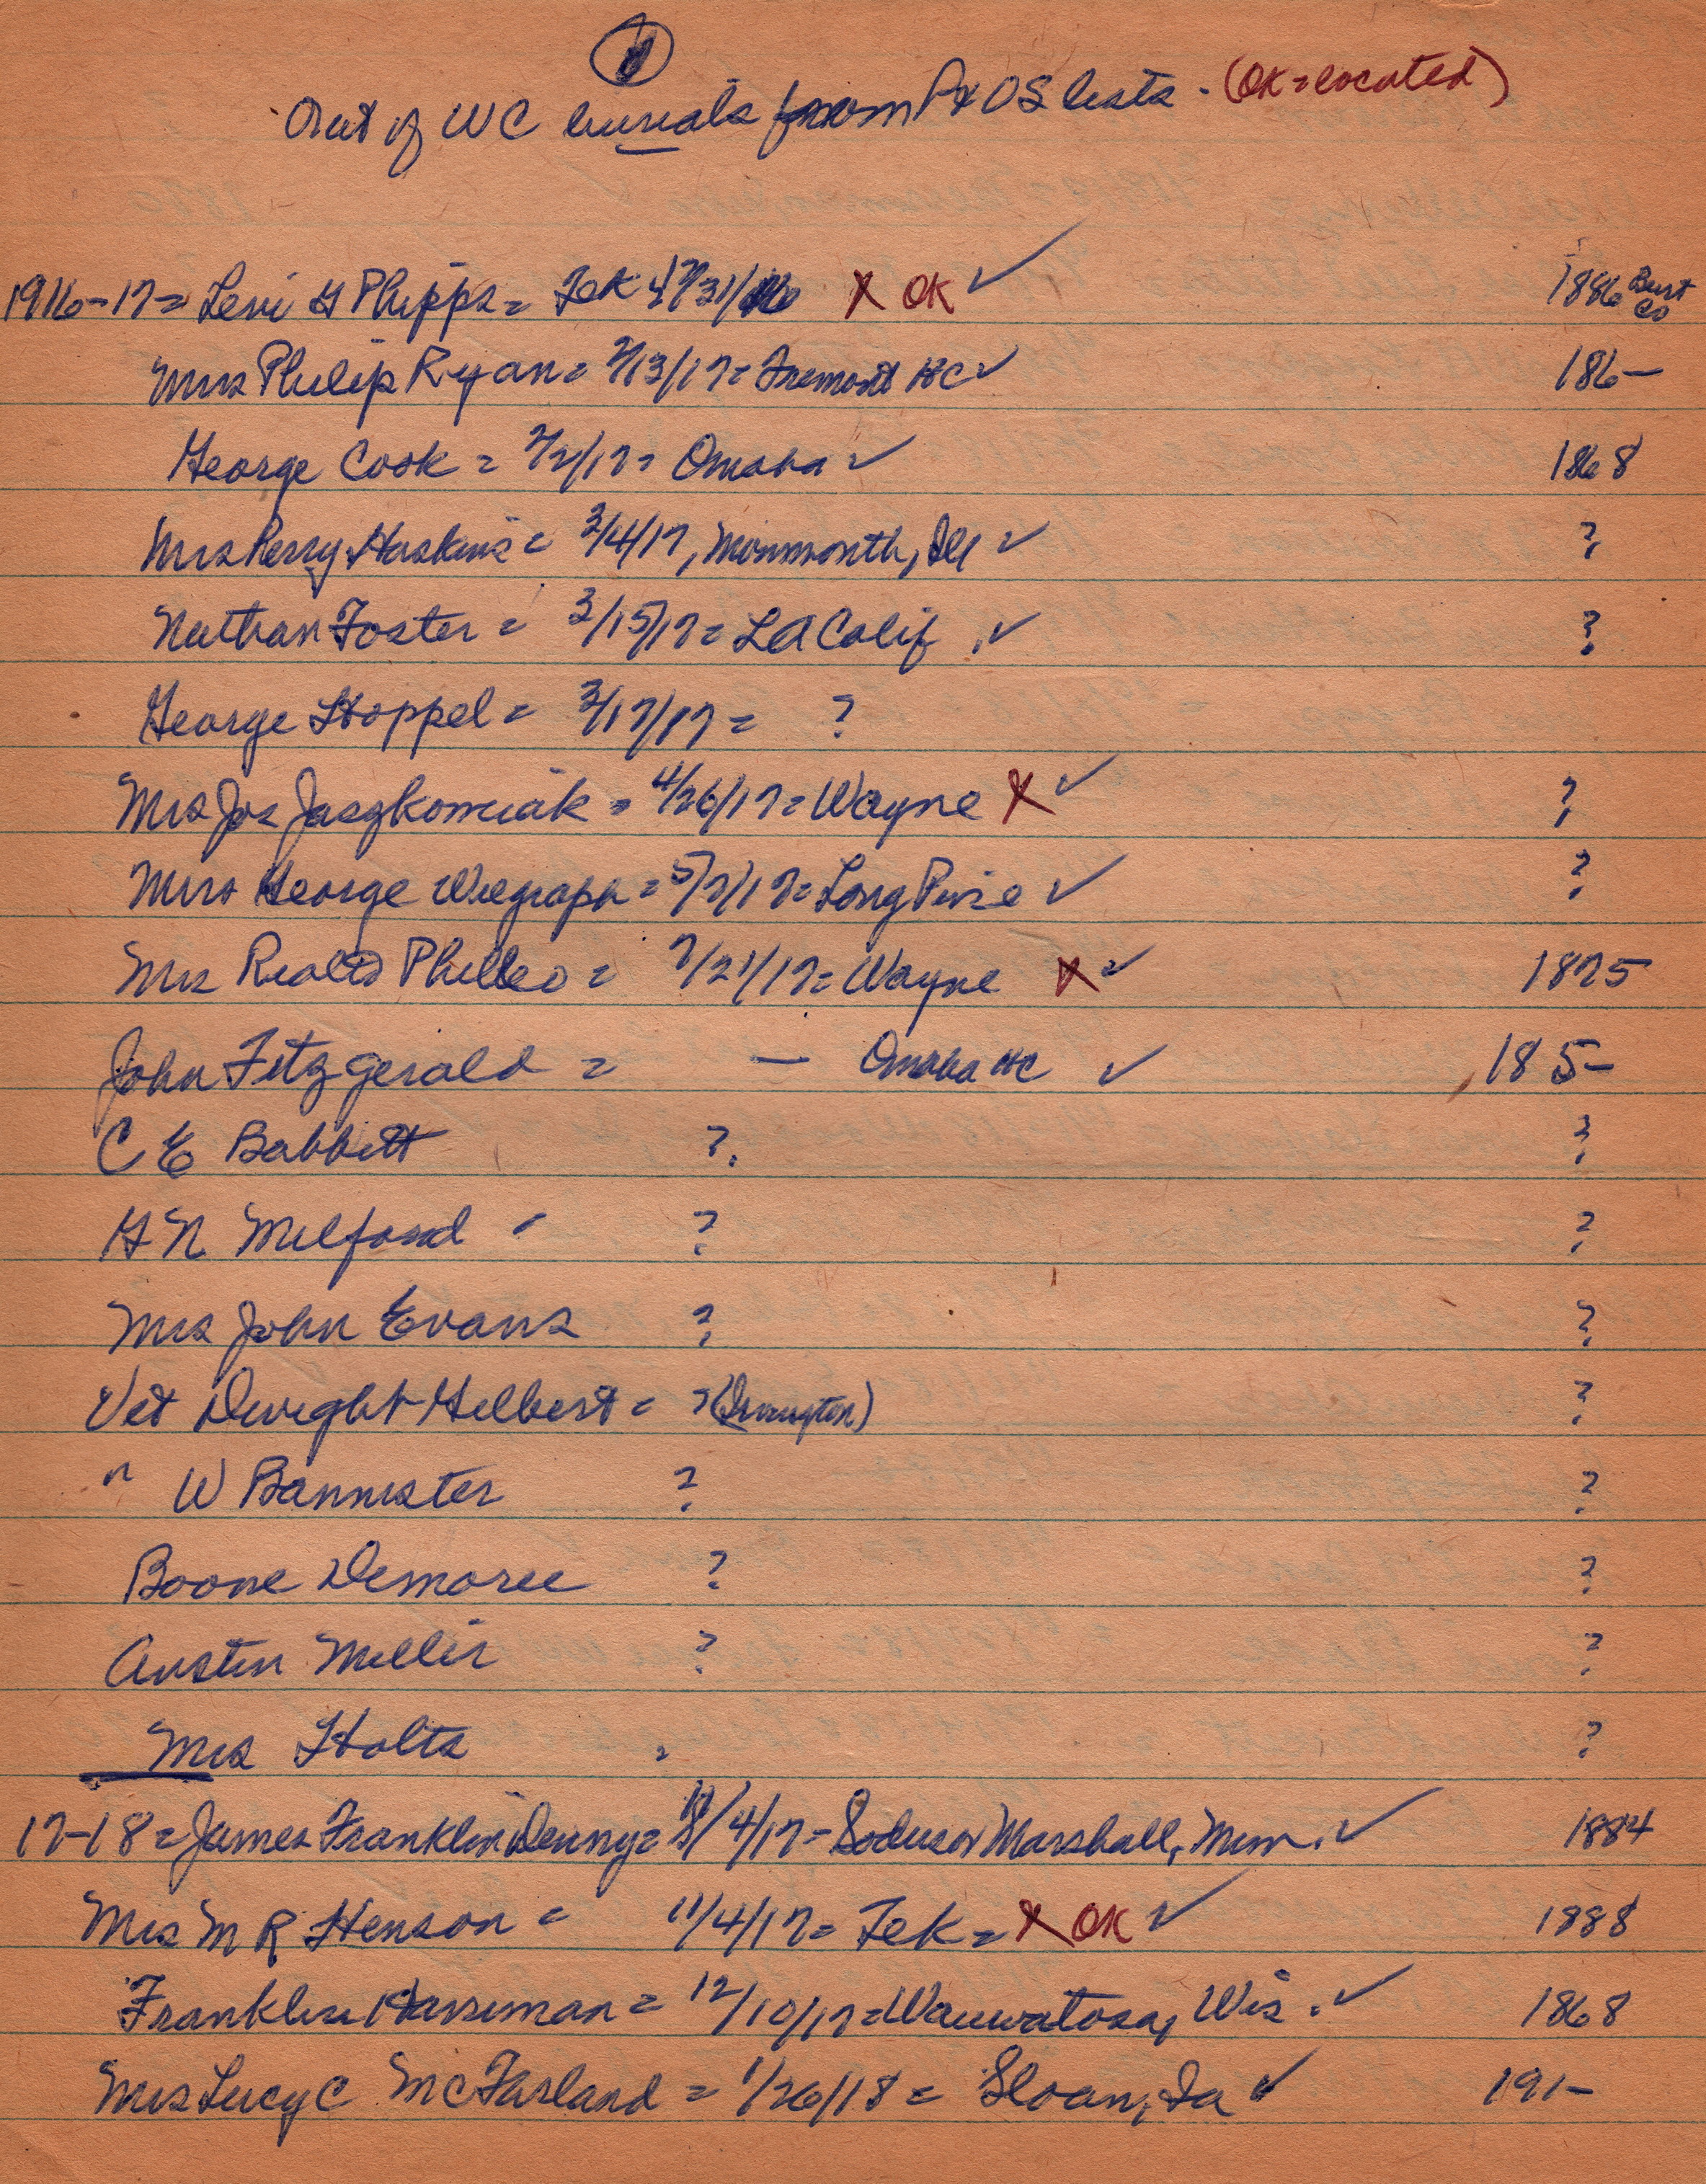 1
Out of WC burials from P & OS lists. (OK = located)
1916-17 = Levi G Phipps = Tek 7/31/16 X OK ✓ 1886 Burt Co
Mrs Philip Ryan = 2/13/17 = Fremont HC ✓ 186-
George Cook = 2/2/17 = Omaha ✓ 1868
Mrs Perry Haskins = 3/4/17, Monmonth, Ill ✓ ?
Nathan Foster = 3/15/17 = LA Calif. ✓ ?
George Hoppel = 3/17/17 = ?
Mrs Jos Jaszkomiak = 4/26/17 = Wayne X ✓ ?
Mrs George Wiegraph = 5/2/17 = Long Pine ✓ ?
Mrs Philleo = 7/21/17 = Wayne X ✓ 1875
John Fitzgerald = - Omaha HC ✓ 185-
C E Babbitt ?. ?
G N Milford - ? ?
Mrs John Evans ? ?
Vet Dwight Gilbert = ? (Irvington) ?
" W Bannister ? ?
Boone Demaree ? ?
Austin Miller ? ?
Mrs Holtz ?
17-18 = James Franklin Denny = /4/17 - Marshall, Minn. ✓ 1884
Mrs M R Henson = 11/4/17 = Tek = X OK ✓ 1888
Franklin Harriman = 12/10/17 = Wauwatosa, Wis. ✓ 1868
Mrs Lucy C McFarland = 1/26/18 = Sloan, Ia ✓ 191-